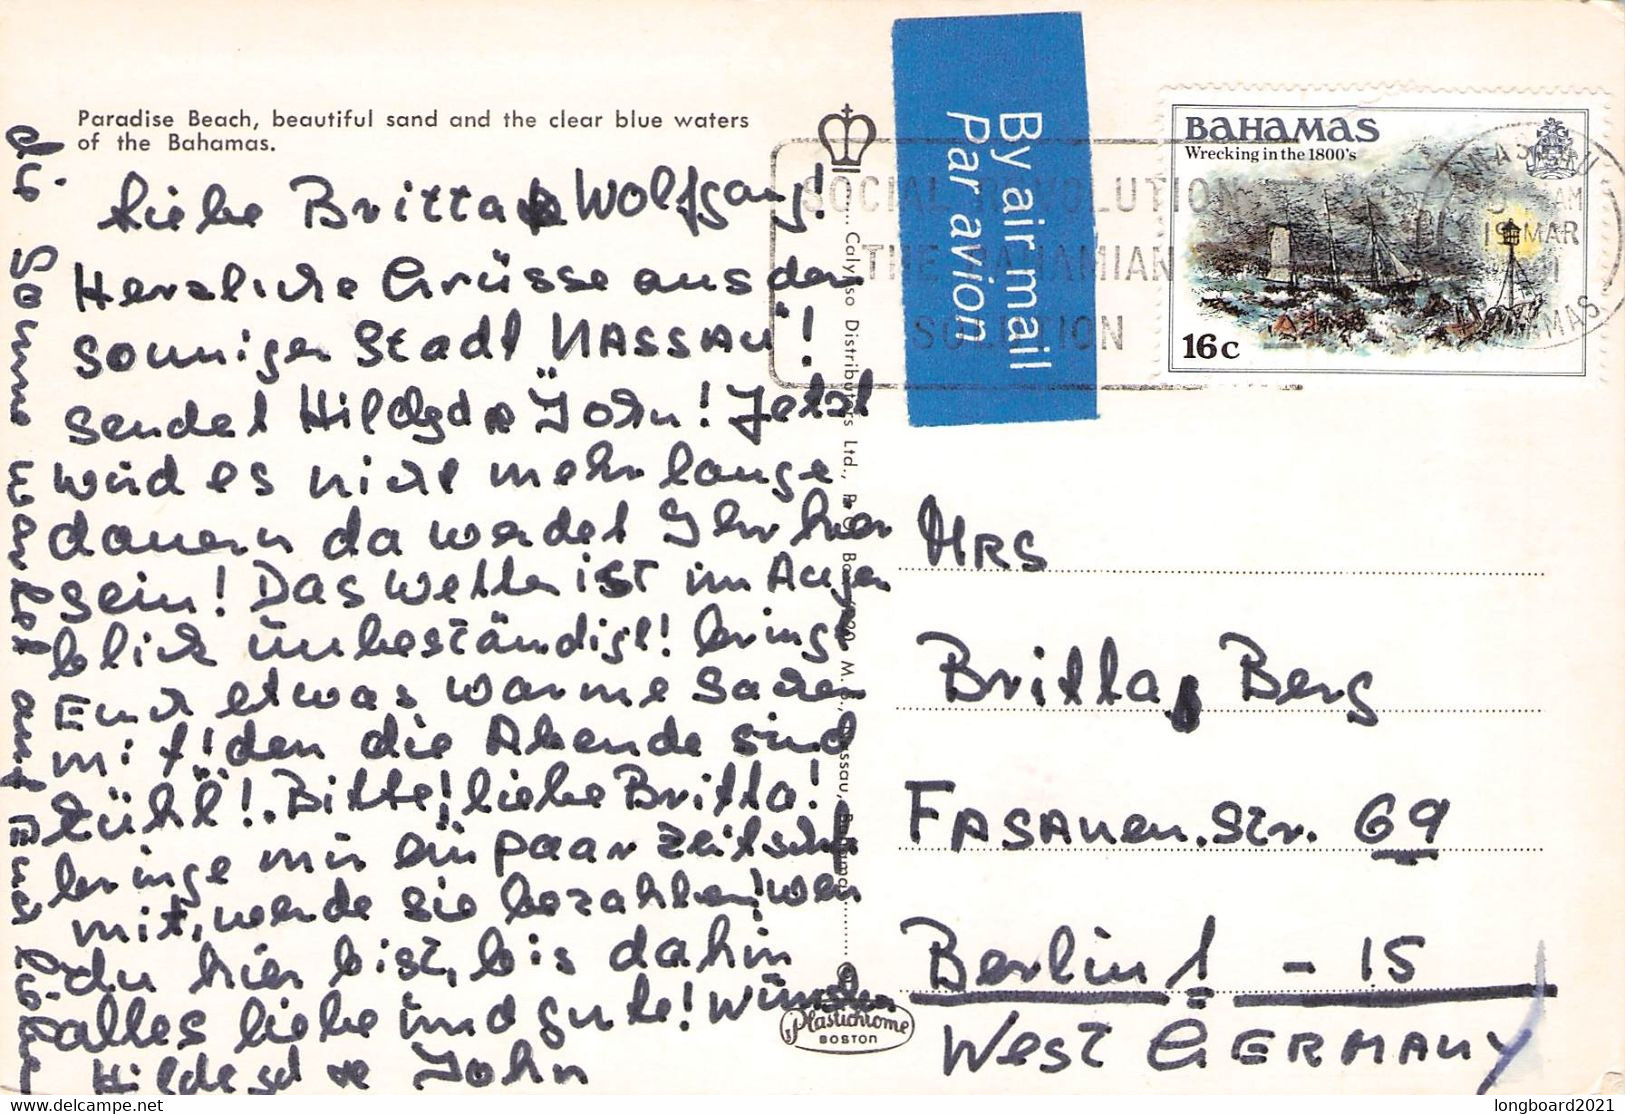 Paradise Beach, beautiful sand and the clear blue waters
of the Bahamas.
Liebe Britta & Wolfgang!
Herzliche Grüsse aus der
sonniger Stadt NASSAU!
sendet Hildegd & John! Jetzt
wird es nicht mehr lange
dauern da werdet Ihr hier
sein! Das Wetter ist im Augen
blick unbeständigt! bringt
Euch etwas warme Sachen
mit! den die Abende sind
kühl! Bitte! liebe Britta!
bringe mir ein paar Zeitschf
mit, werde sie bezahlen! wen
du hier bist, bis dahin
alles liebe und gute! Wünschen
Hildegd & John
die Sonne wartet auf Euch
Calypso Distributors Ltd., P. O. Box N, Nassau, Bahamas
©
Plastichrome
BOSTON
By air mail
Par avion
SOCIAL REVOLUTION
THE BAHAMIAN
SOLUTION
BAHAMAS
Wrecking in the 1800's
16c
NASSAU
AM
19 MAR
BAHAMAS
MRS
Britta Berg
FASANEN.Str. 69
Berlin 1 - 15
West GERMANY
longboard2021